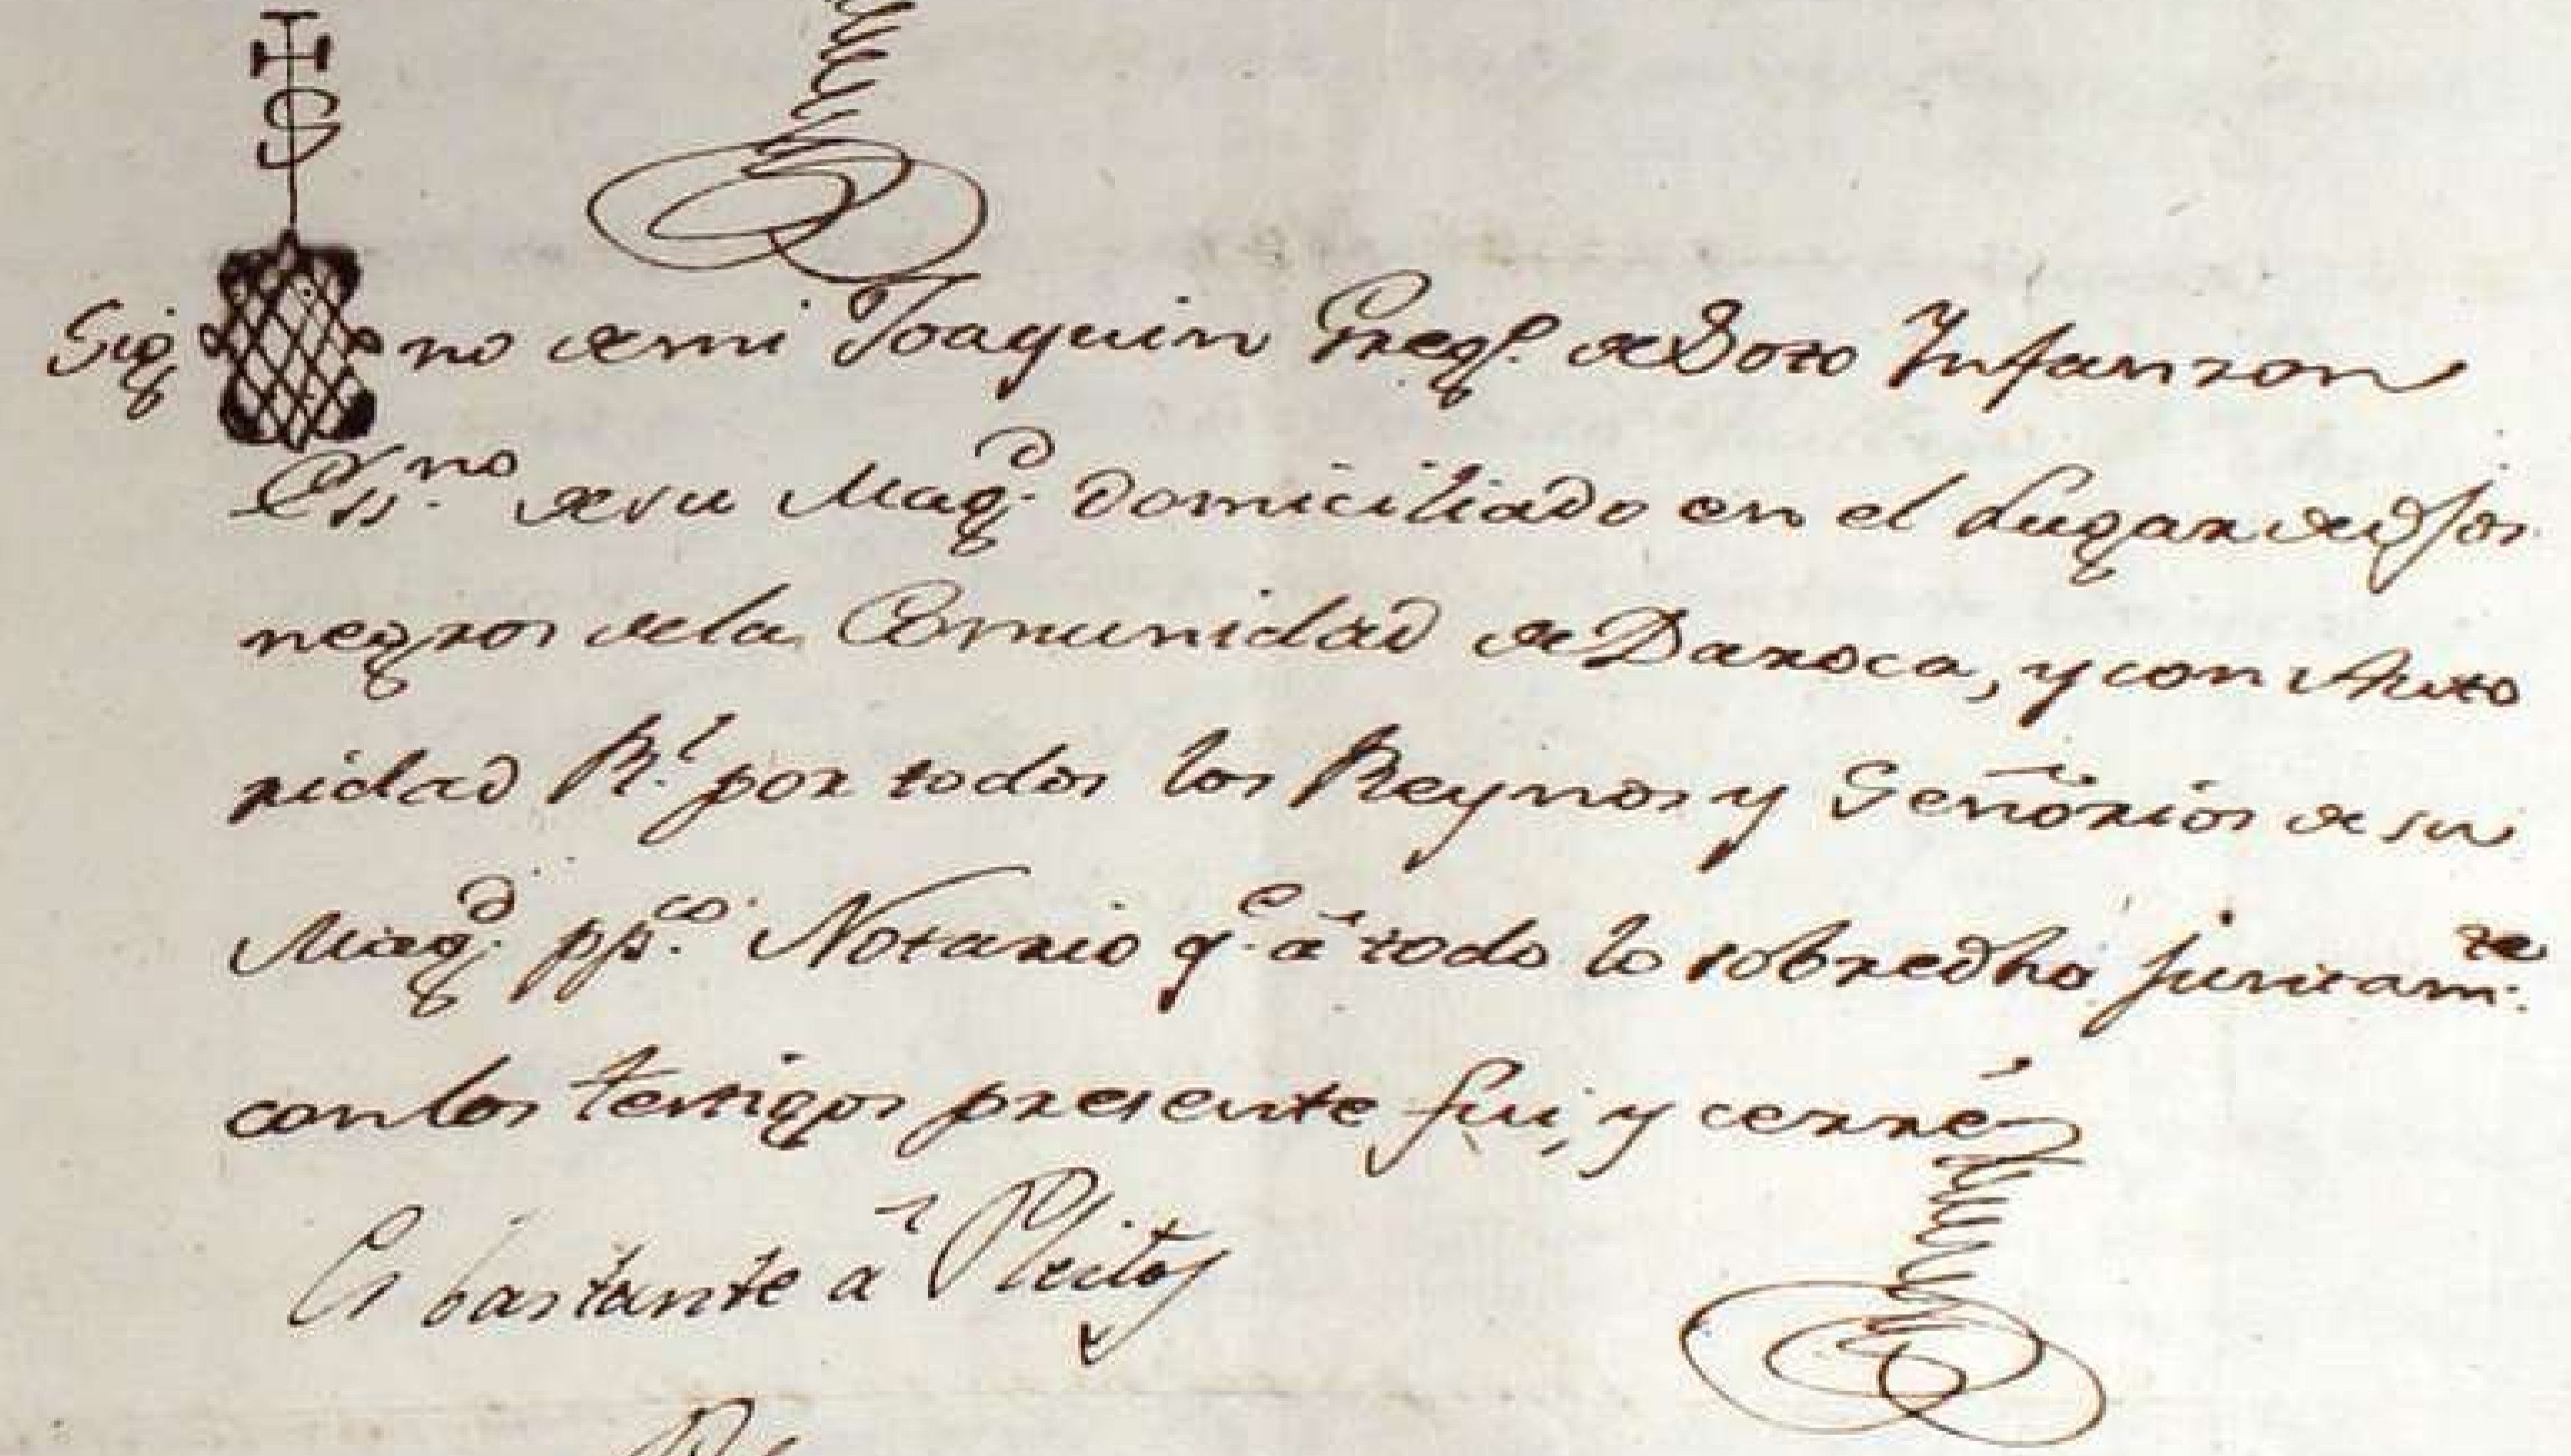 Sig no de mi Joaquin Greg.º de Soto Infanzon
Ess.no de su Mag.d domiciliado en el Lugar de Ojos
negros de la Comunidad de Daroca, y con Auto
ridad R.l por todos los Reynos y Señorios de su
Mag.d pp.co Notario q.e â todo lo sobredho juntam.te
con los testigos presente fui, y cerré
Es bastante a Pleitos